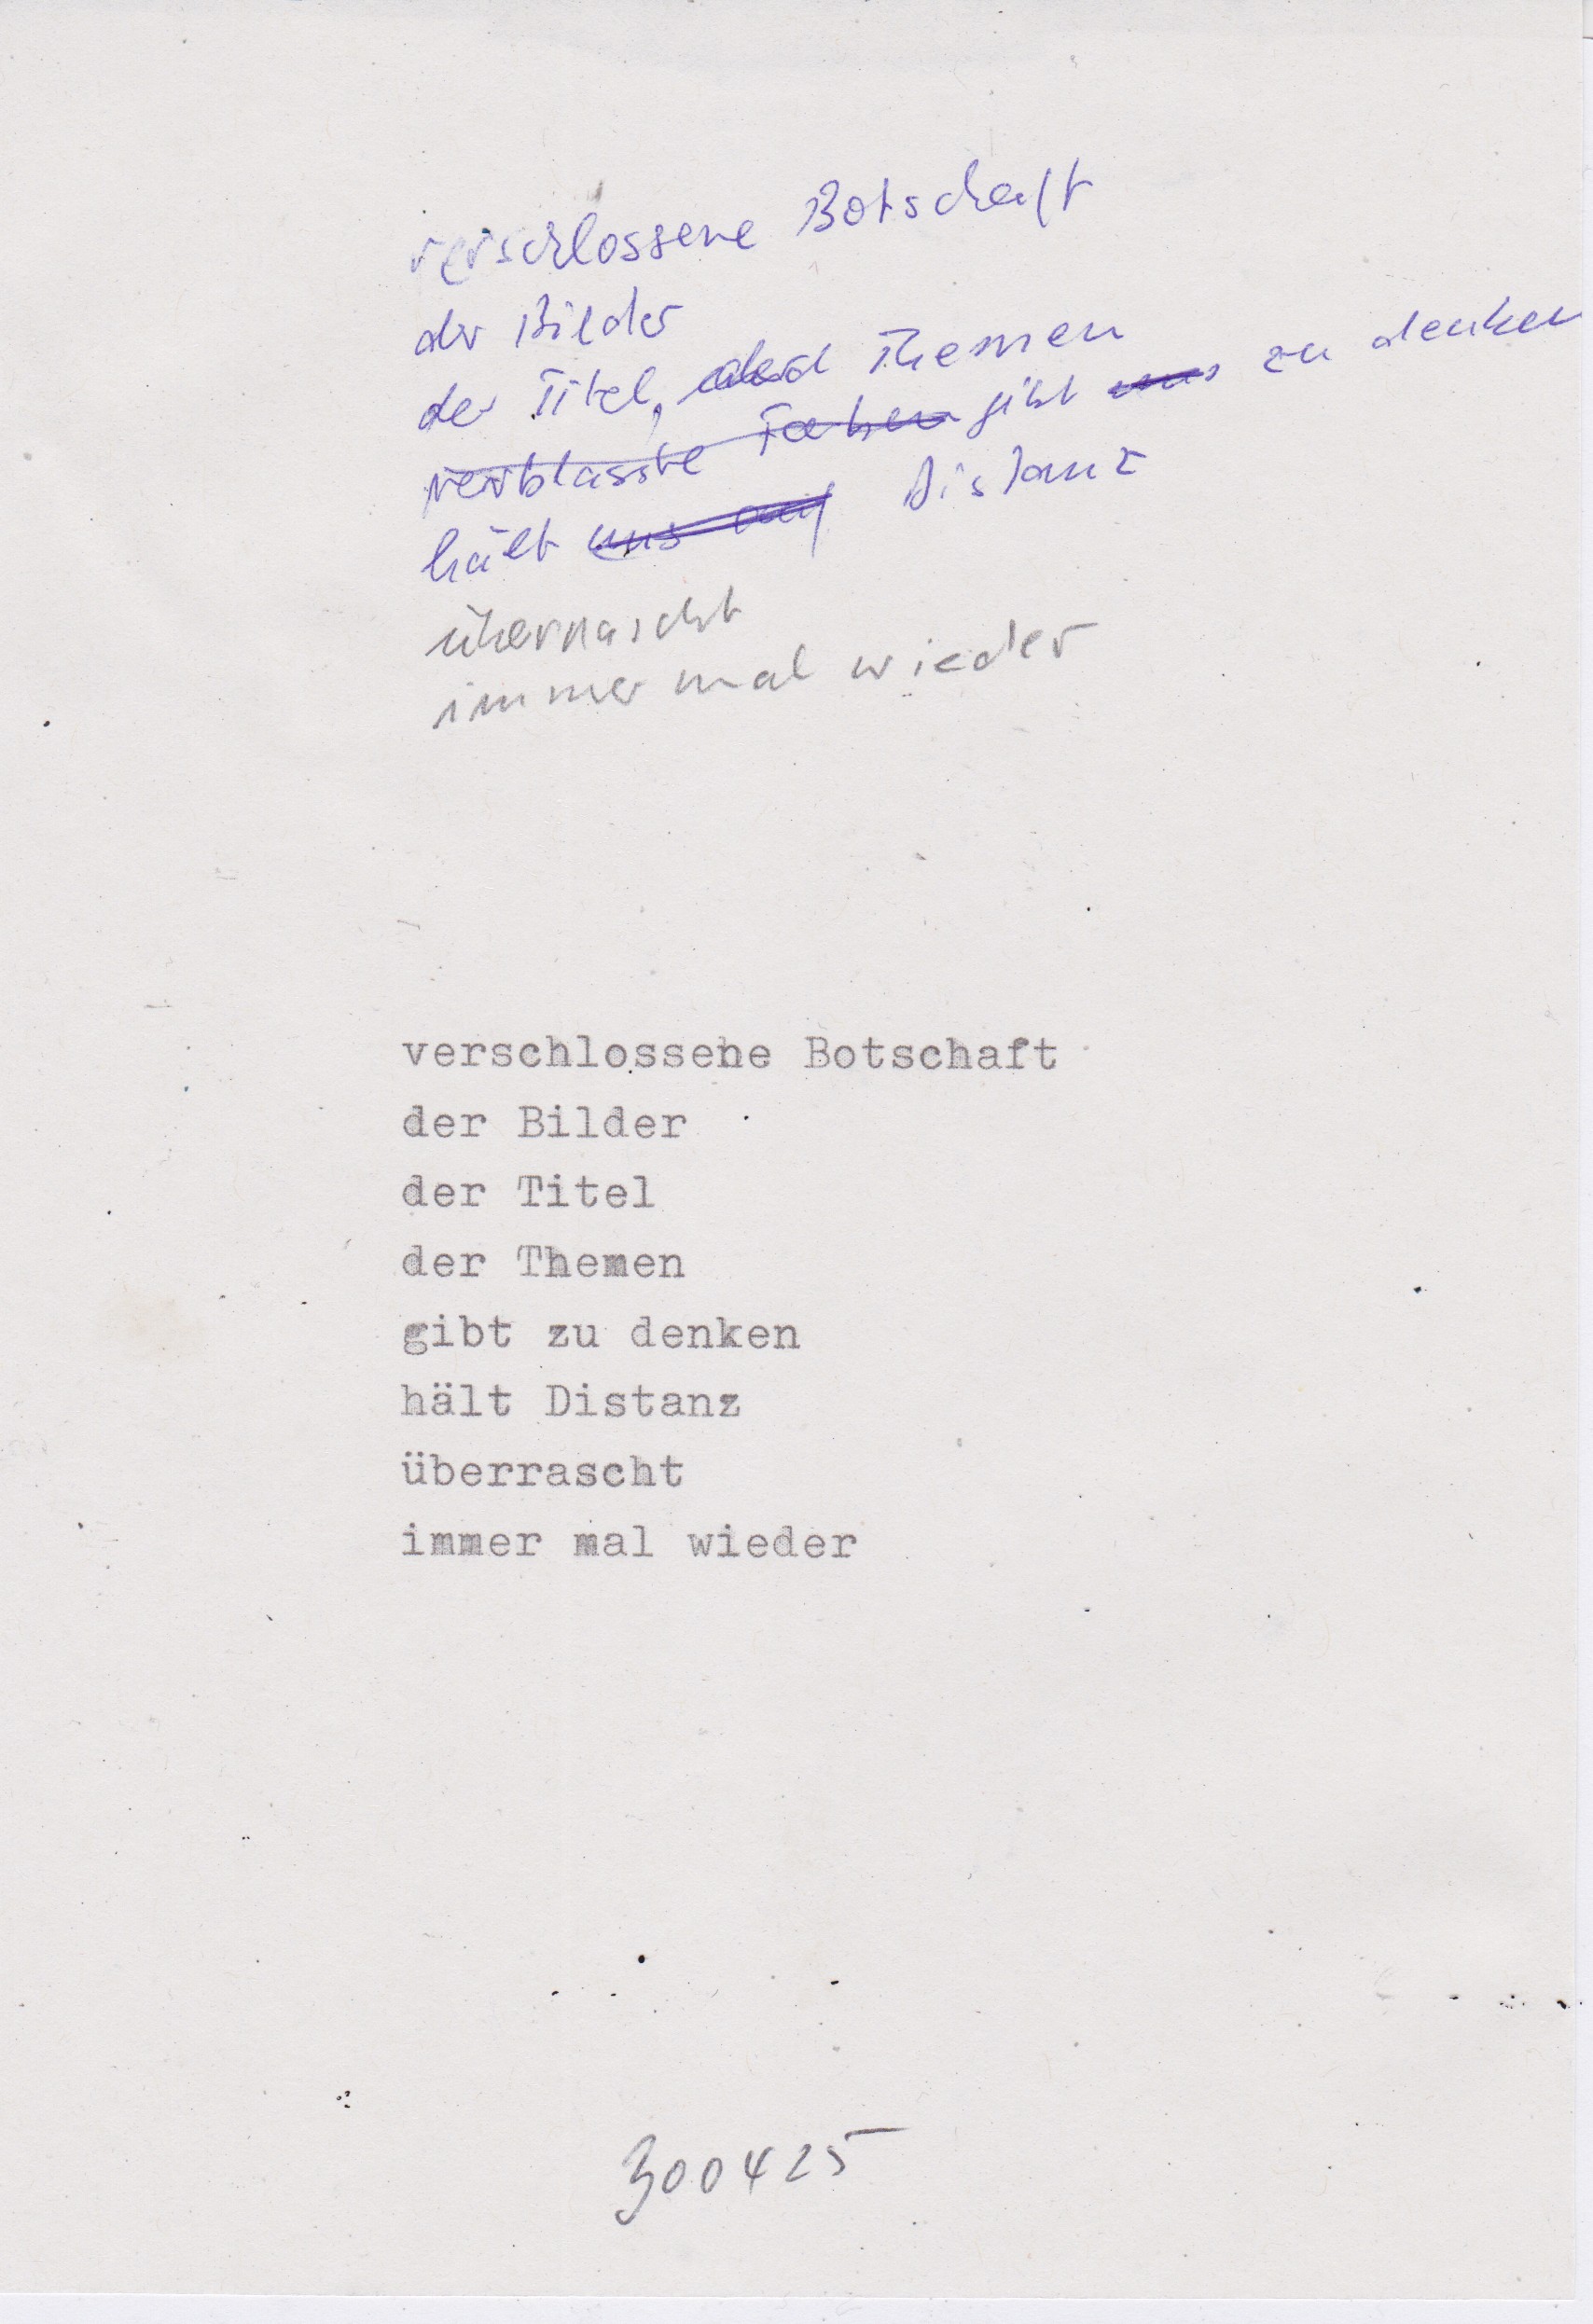 verschlossene Botschaft
der Bilder
der Titel, Themen
verblasste Farben gibt uns zu denken
hält uns auf Distanz
überrascht
immer mal wieder
verschlossene Botschaft
der Bilder
der Titel
der Themen
gibt zu denken
hält Distanz
überrascht
immer mal wieder
300425